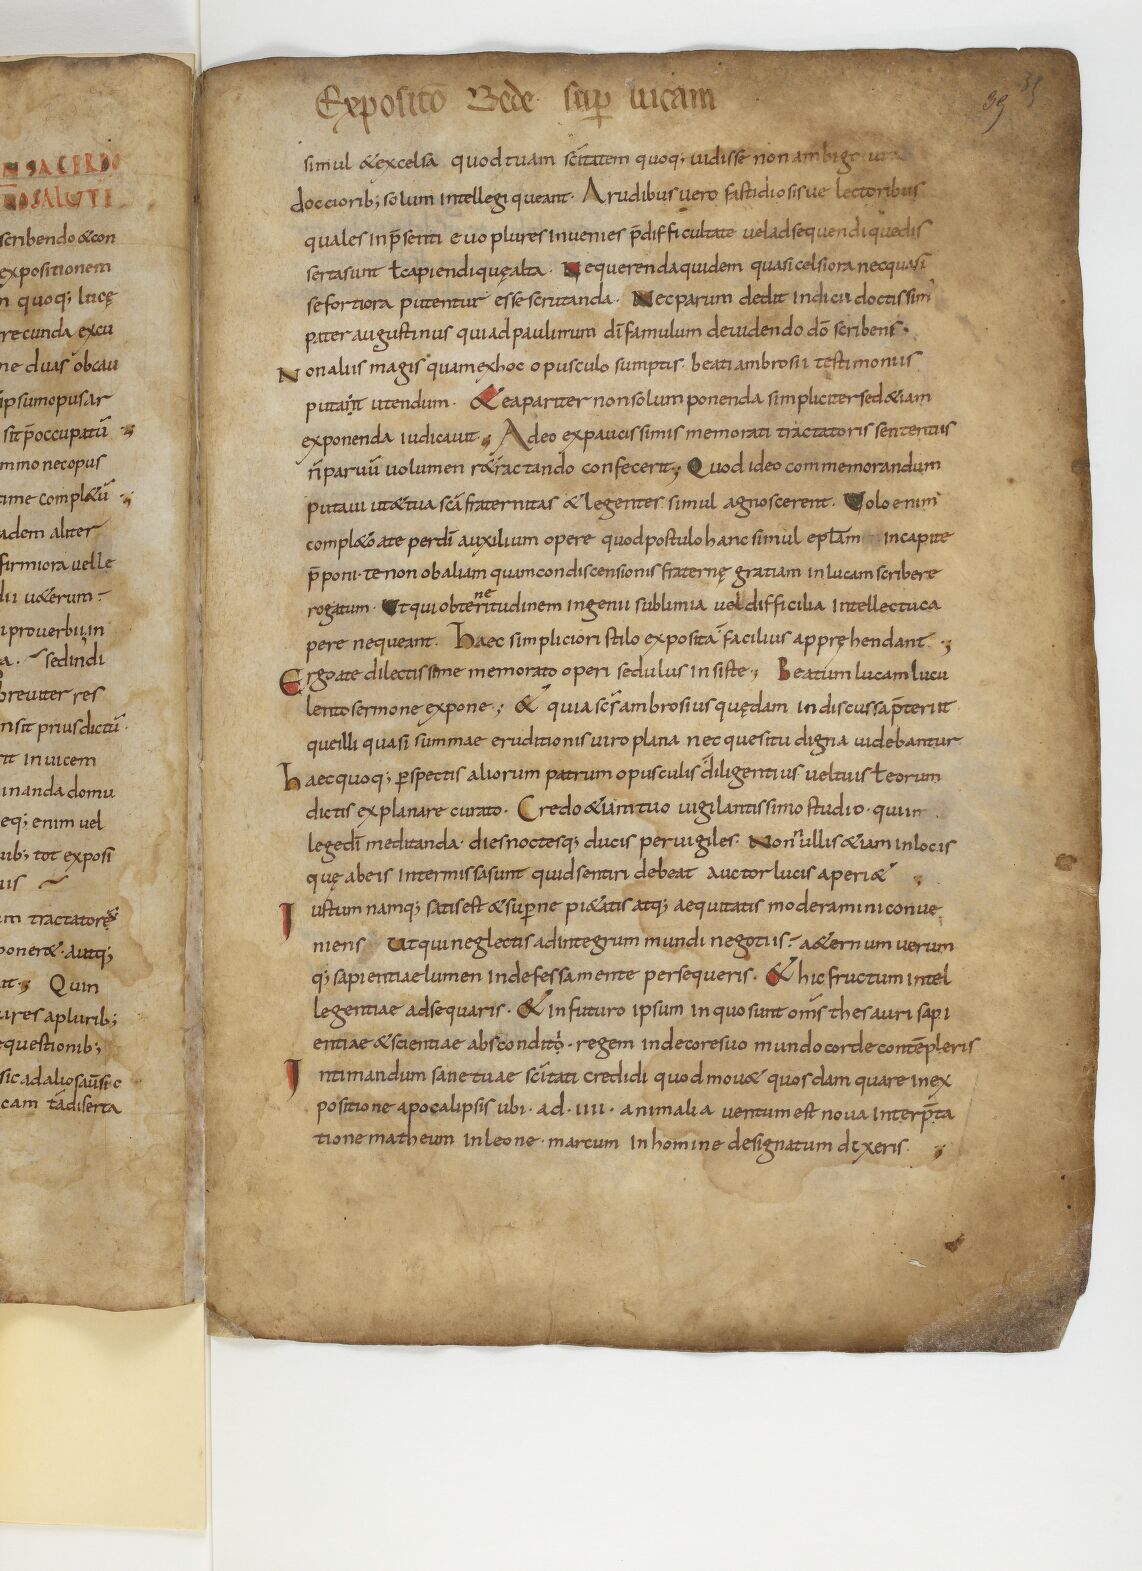 NSACERDO
NOSALUTE
scribendo &con
expositionem
n quoq; lucę
recunda excu
ne duas obcau
ipsum opus ar
sit p̄occupatū
mmo nec opus
time compl&ū
adem aliter
firmiora uelle
dii u&erum
prouerbium
a. sed indi
breuiter res
nsit prius dictū
rit inuicem
inanda domu
eq; enim uel
uib; tot exposi
uis
um tractatores
poner& autq;
it Quin
ures a plurib;
equestionib;
sic ad alios aūsi c
cam tādiserta
Expositō Bede sup lucam
39 35
simul & excelsa quod tuam sc̄itatem quoq; uidisse non ambigo
docciorib; solum intellegi queant. A rudibus uero fastidiosisue lectoribus
quales in p̄senti euo plures inuenies p̄difficultate uel adsequendi quędis
serta sunt ł capiendi quę alta. Nequerenda quidem quasi celsiora nec quasi
se fortiora putentur esse scrutanda. Nec parum dedit indicii doctissim
pater augustinus qui ad paulinum dī famulum de uidendo dō scribens.
Non aliis magis quam ex hoc opusculo sumptis beati ambrosii testimoniis
putaūt utendum. & ea pariter non solum ponenda simpliciter sed &iam
exponenda iudicauit; Adeo ex paucissimis memorati tractatoris sententiis
n̄ paruū uolumen r&ractando confecerit; Quod ideo commemorandum
putaui ut & tua sc̄a fraternitas & legentes simul agnoscerent. Uolo enim
compl&o a te per dī auxilium opere quod postulo hanc simul epl̄am in capite
p̄poni. te non ob aliam quam condiscensionis fraternę gratiam in lucam scribere
rogatum. Ut qui ob teneritudinem ingenii sublimia uel difficilia intellectu ca
pere nequeant. haec simpliciori stilo exposita facilius appręhendant.;
Ergo a te dilectissime memorato operi sedulus insiste; Beatum lucam lucu
lento sermone expone; & quia sc̄s ambrosius quędam indiscussa p̄terut
que illi quasi summae eruditionis uiro plana nec quesitu digna uidebantur
haec quoq; perspectis aliorum patrum opusculis diligentius uel tuis ł eorum
dictis explanare curato. Credo &iam tuo uigilantissimo studio. qui in
lege dī meditanda. dies noctesq; ducis peruigiles. Non nullis &iam in locis
quę ab eis intermissa sunt quid sentiri debeat auctor lucis aperi&;
Iustum namq; satis est & supernę pi&atis atq; aequitatis moderamini conue
niens Ut qui neglectis ad integrum mundi negotiis a&ernum uerum
q; sapientiae lumen indefessa mente persequeris. & hic fructum intel
legentiae adsequaris. & in futuro ipsum in quo sunt om̄s thesauri sapi
entiae & scientiae absconditi. regem in decore suo mundo corde contēpleris
Intimandum sane tuae sc̄itati credidi quod mou& quosdam quare in ex
positione apocalipsis ubi. ad. IIII. animalia uentum est noua interp̄ta
tione matheum in leone. marcum in homine designatum dixeris.;